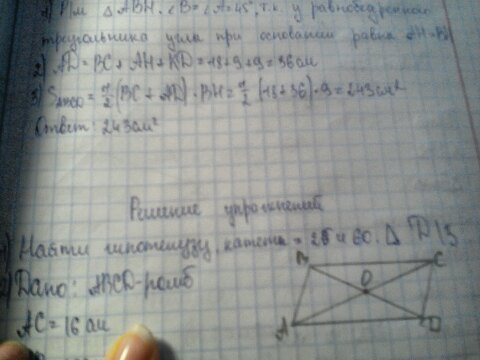 1) Δ ABH. ∠B = ∠A = 45°, т.к. у равнобедренного
треугольника углы при основании равны AH = BH
2) AD = BC + AH + KD = 18 + 9 + 9 = 36 см
3) S = 1/2 (BC + AD) · BH = 1/2 (18 + 36) · 9 = 243 см²
Ответ: 243 см²
Решение упражнений
1) Найти гипотенузу, катеты = и 60. Δ
2) Дано: ABCD - ромб
AC = 16 см
B C
O
A D